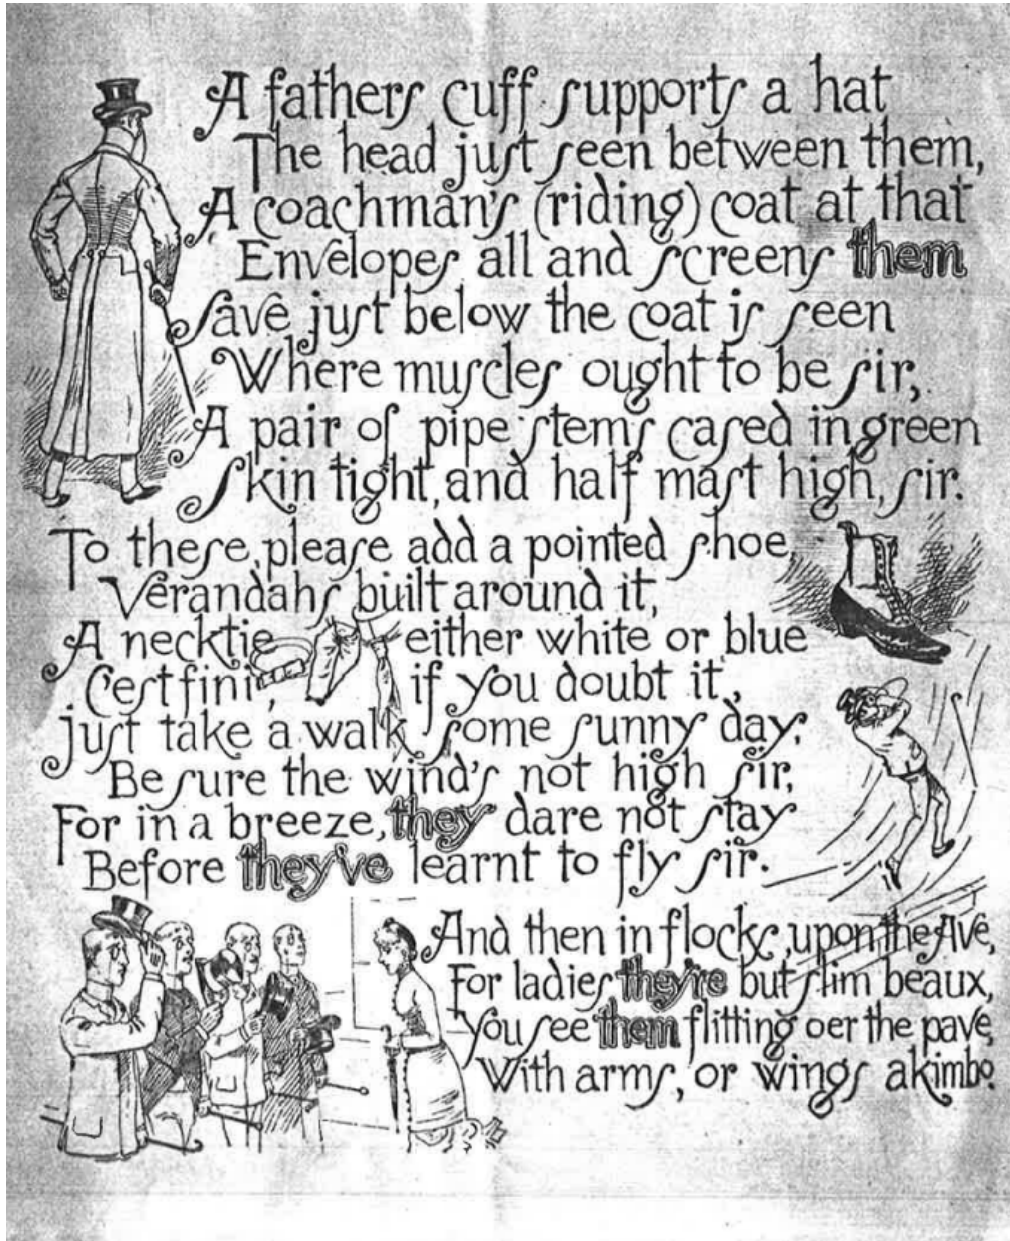 A fathers cuff supports a hat
The head just seen between them,
A coachman's (riding) coat at that
Envelopes all and screens them
Save just below the coat is seen
Where muscles ought to be sir,
A pair of pipe stems cased in green
Skin tight, and half mast high, sir.
To these, please add a pointed shoe,
Verandahs built around it,
A necktie either white or blue
C'est fini, if you doubt it,
just take a walk some sunny day,
Be sure the wind's not high sir,
For in a breeze, they dare not stay
Before they've learnt to fly sir.
And then in flocks, upon the Ave,
For ladies they're but slim beaux,
You see them flitting oer the pave
With arms, or wings akimbo.